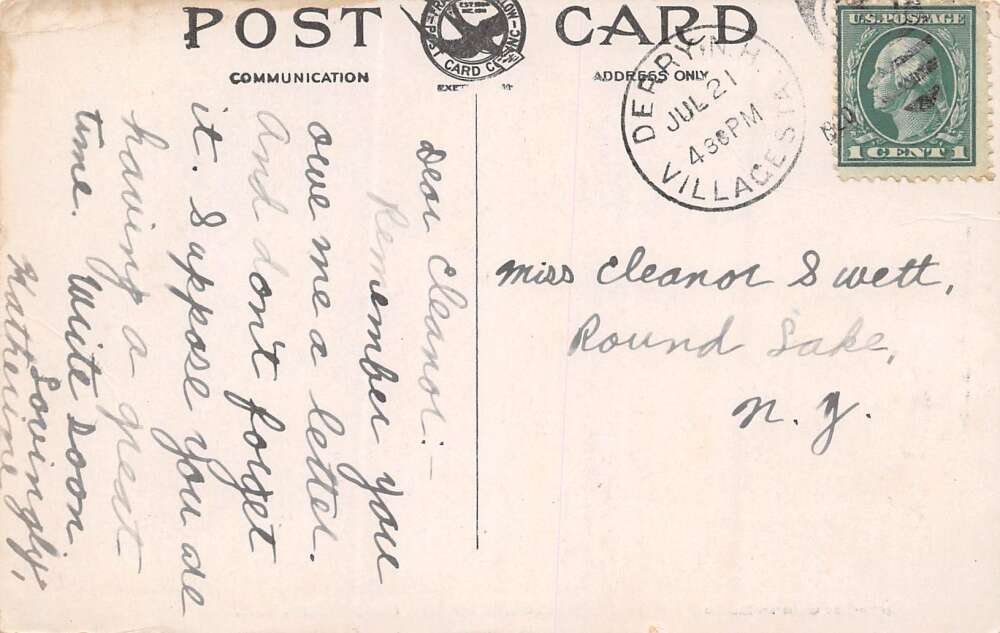 POST CARD
COMMUNICATION
ADDRESS ONLY
POST CARD CO. INC.
DERRY N.H.
JUL 21
4 30 PM
VILLAGE STA
U.S. POSTAGE
1 CENT 1
Dear Eleanor:-
Remember you
owe me a letter.
And don't forget
it. Suppose you are
having a great
time. Write soon
Lovingly,
Katherine
Miss Eleanor Swett,
Round Lake,
N. Y.